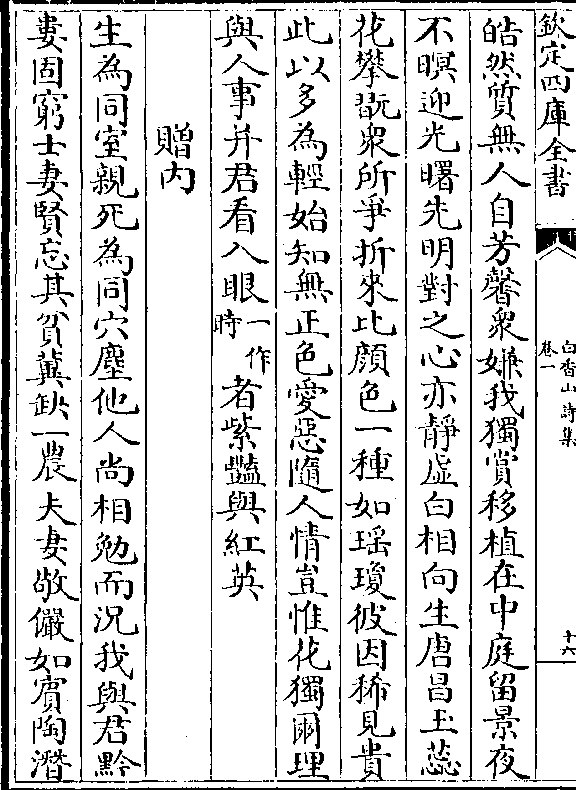 欽定四庫全書
白香山詩集
卷一
十六
皓然質無人自芳馨衆嫌我獨賞移植在中庭留景夜
不暝迎光曙先明對之心亦靜虛白相向生唐昌玉蕊
花攀翫衆所爭折來比顔色一種如瑤瓊彼因稀見貴
此以多為輕始知無正色愛惡隨人情豈惟花獨爾理
與人事并君看入眼一作時者紫豔與紅英
贈内
生為同室親死為同穴塵他人尚相勉而況我與君黔
婁固窮士妻賢忘其貧冀缺一農夫妻敬儼如賓陶潛